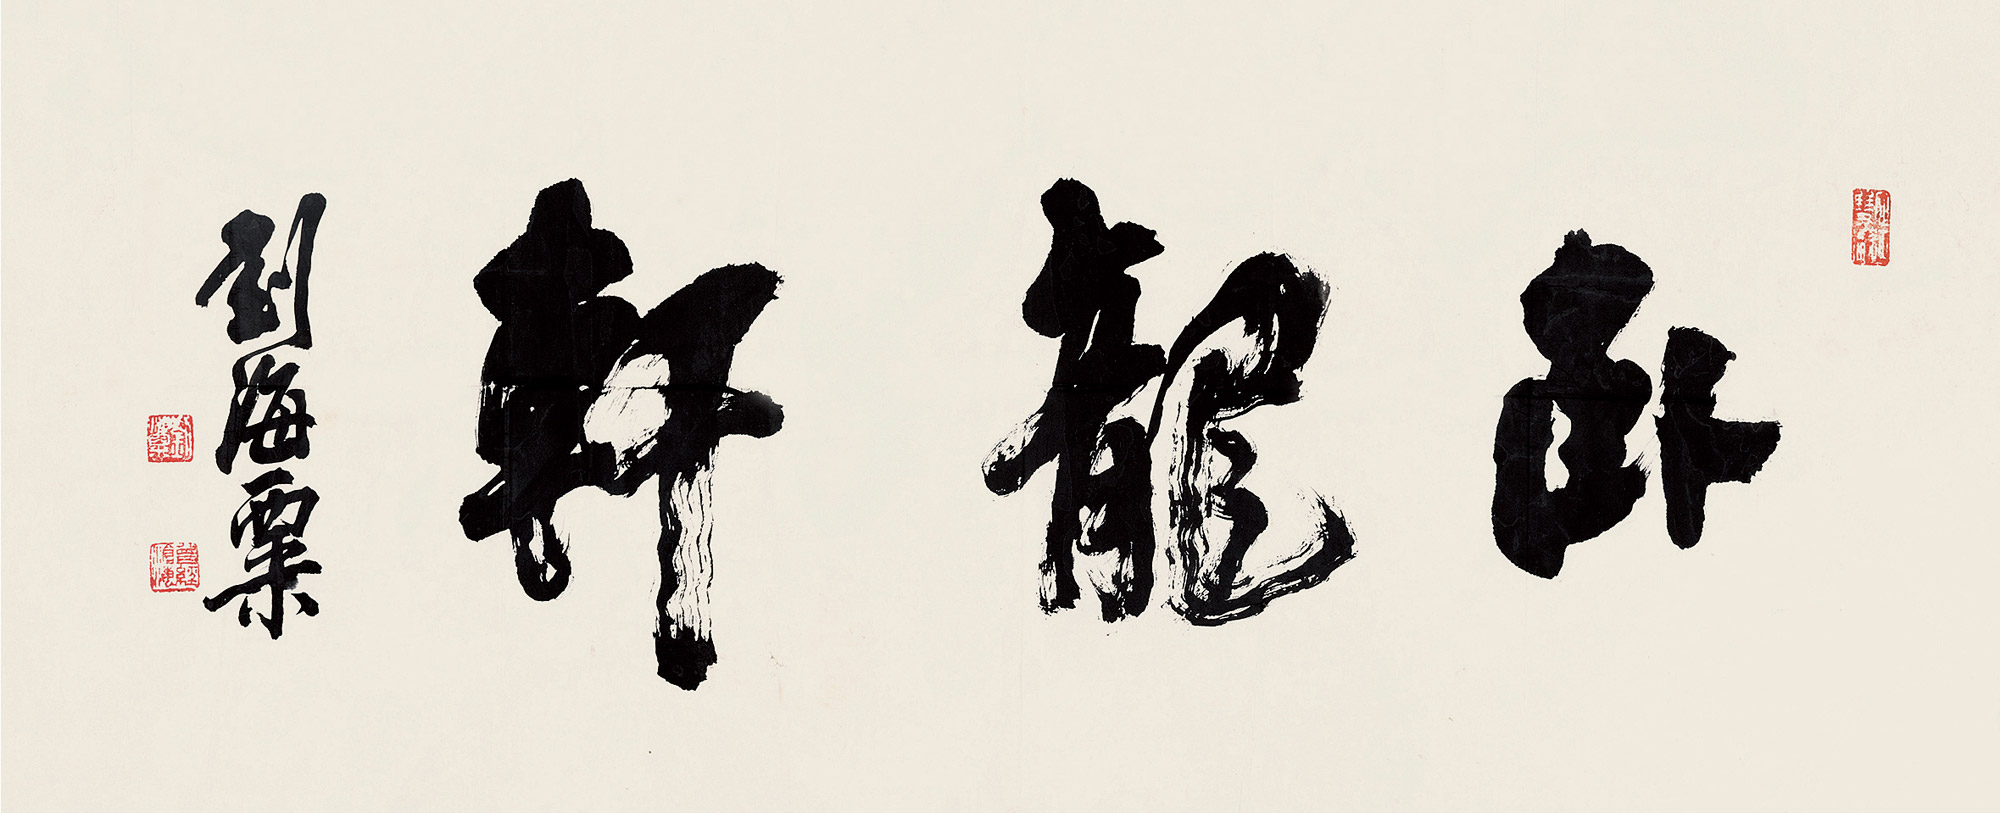 臥龍軒
劉海粟